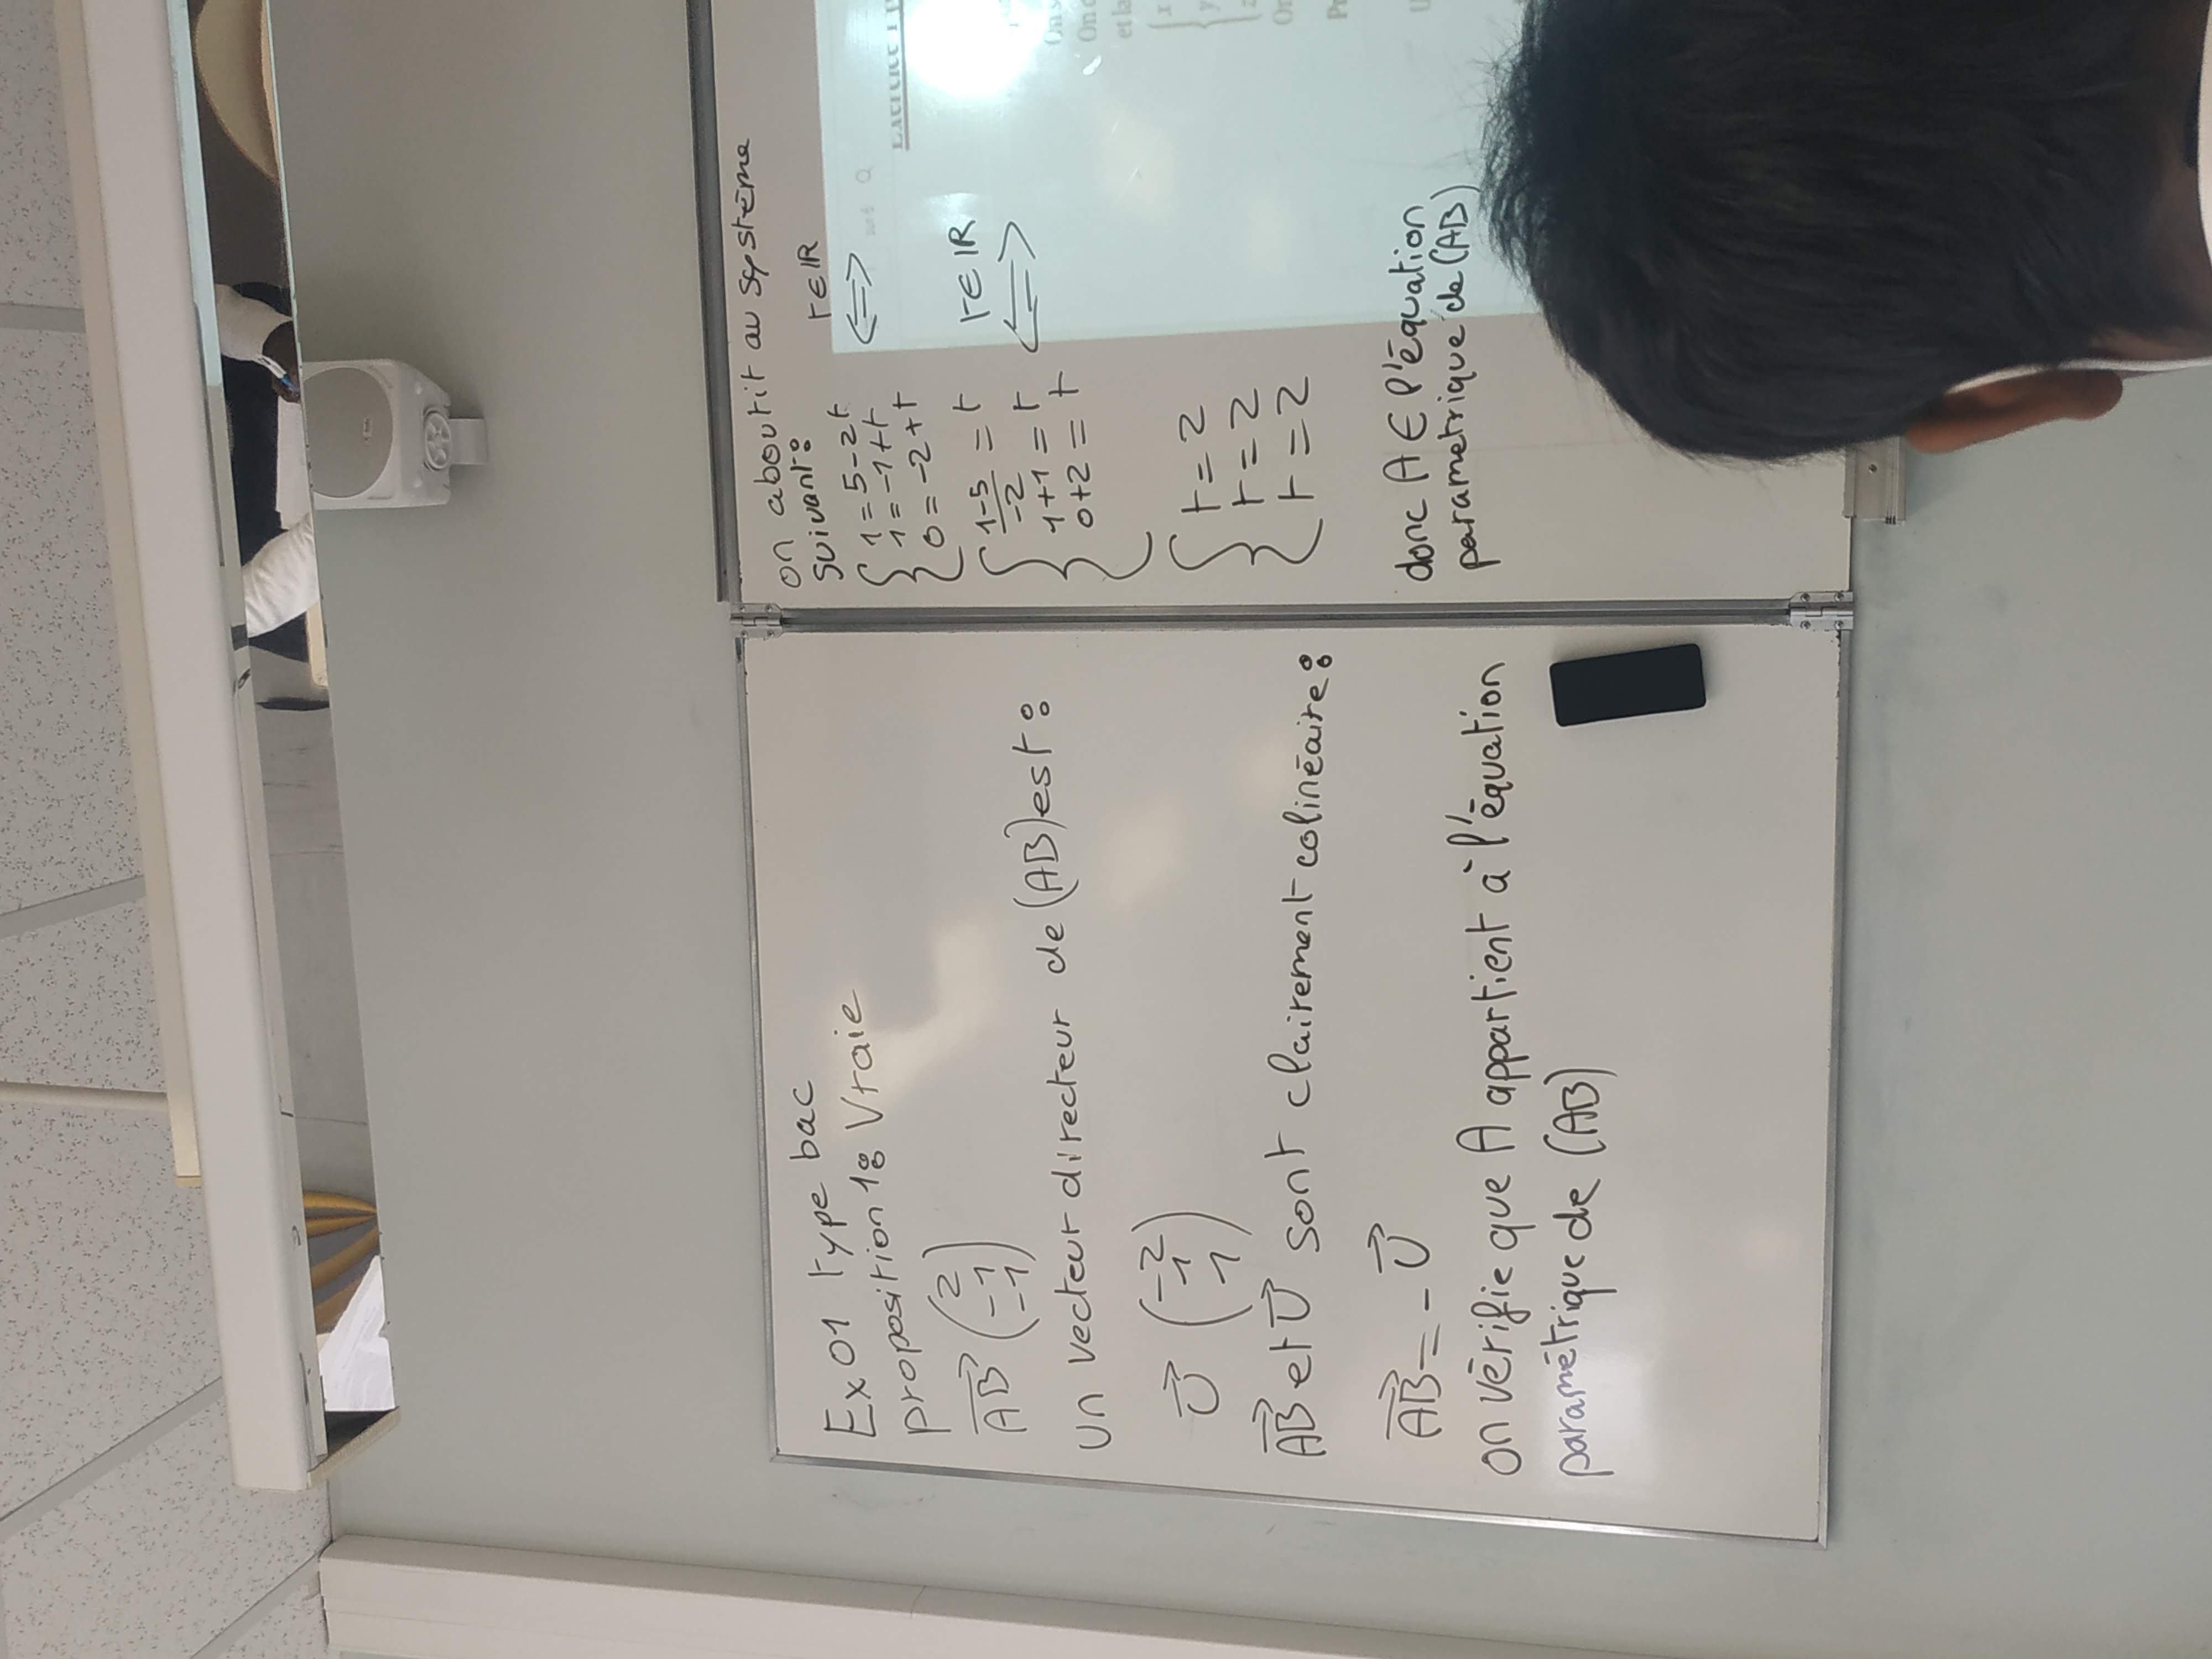 Ex 01 type bac
proposition 1: Vraie
→AB (2 -1 -1)
un vecteur directeur de (AB) est :
→U (-2 1 1)
→AB et →U sont clairement colinéaire :
→AB = - →U
on vérifie que A appartient à l'équation
paramétrique de (AB)
on aboutit au système
suivant :
{ 1 = 5-2t
1 = -1+t
0 = -2+t
t∈IR
⟺
{ 1-5/-2 = t
1+1 = t
0+2 = t
t∈IR
⟺
{ t = 2
t = 2
t = 2
donc A ∈ l'équation
parametrique de (AB)
sur 6
On
et la
{ x
y
z